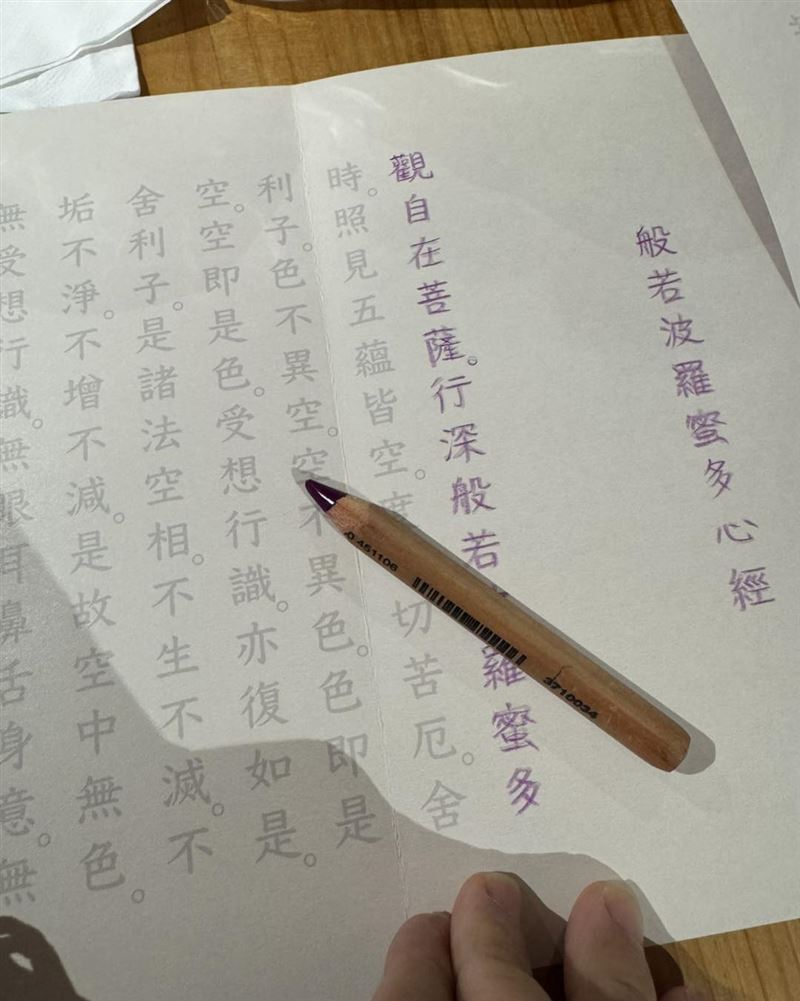 般若波羅蜜多心經
觀自在菩薩。行深般若羅蜜多
時。照見五蘊皆空。度切苦厄。舍
利子。色不異空。空不異色。色即是
空。空即是色。受想行識。亦復如是。
舍利子。是諸法空相。不生不滅。不
垢不淨。不增不減。是故空中無色。
無受想行識。無眼耳鼻舌身意。無
0 451106
3710034